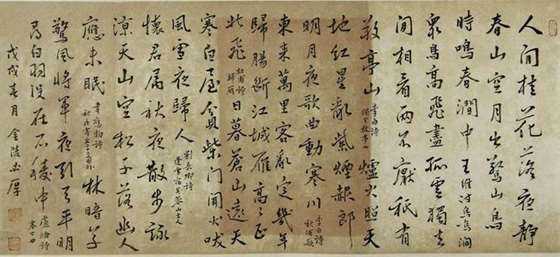 人閒桂花落夜靜
春山空月出驚山鳥
時鳴春澗中 王維詩鳥鳴澗
衆鳥高飛盡孤雲獨去
閒相看兩不厭秖有
敬亭山 李白詩獨坐敬亭山 爐火照天
地紅星亂紫煙赧郎
明月夜歌曲動寒川 李白詩秋浦歌
東來萬里客亂定幾年
歸腸斷江城雁高高正
北飛 杜甫詩歸雁 日暮蒼山遠天
寒白屋貧柴門聞犬吠
風雪夜歸人 劉長卿詩逢雪宿芙蓉山主人
懷君屬秋夜散步詠
涼天山空松子落幽人
應未眠 韋應物詩 林暗草
驚風將軍夜引弓平明
尋白羽沒在石稜中 盧綸詩塞下曲
戊戌春月金陵